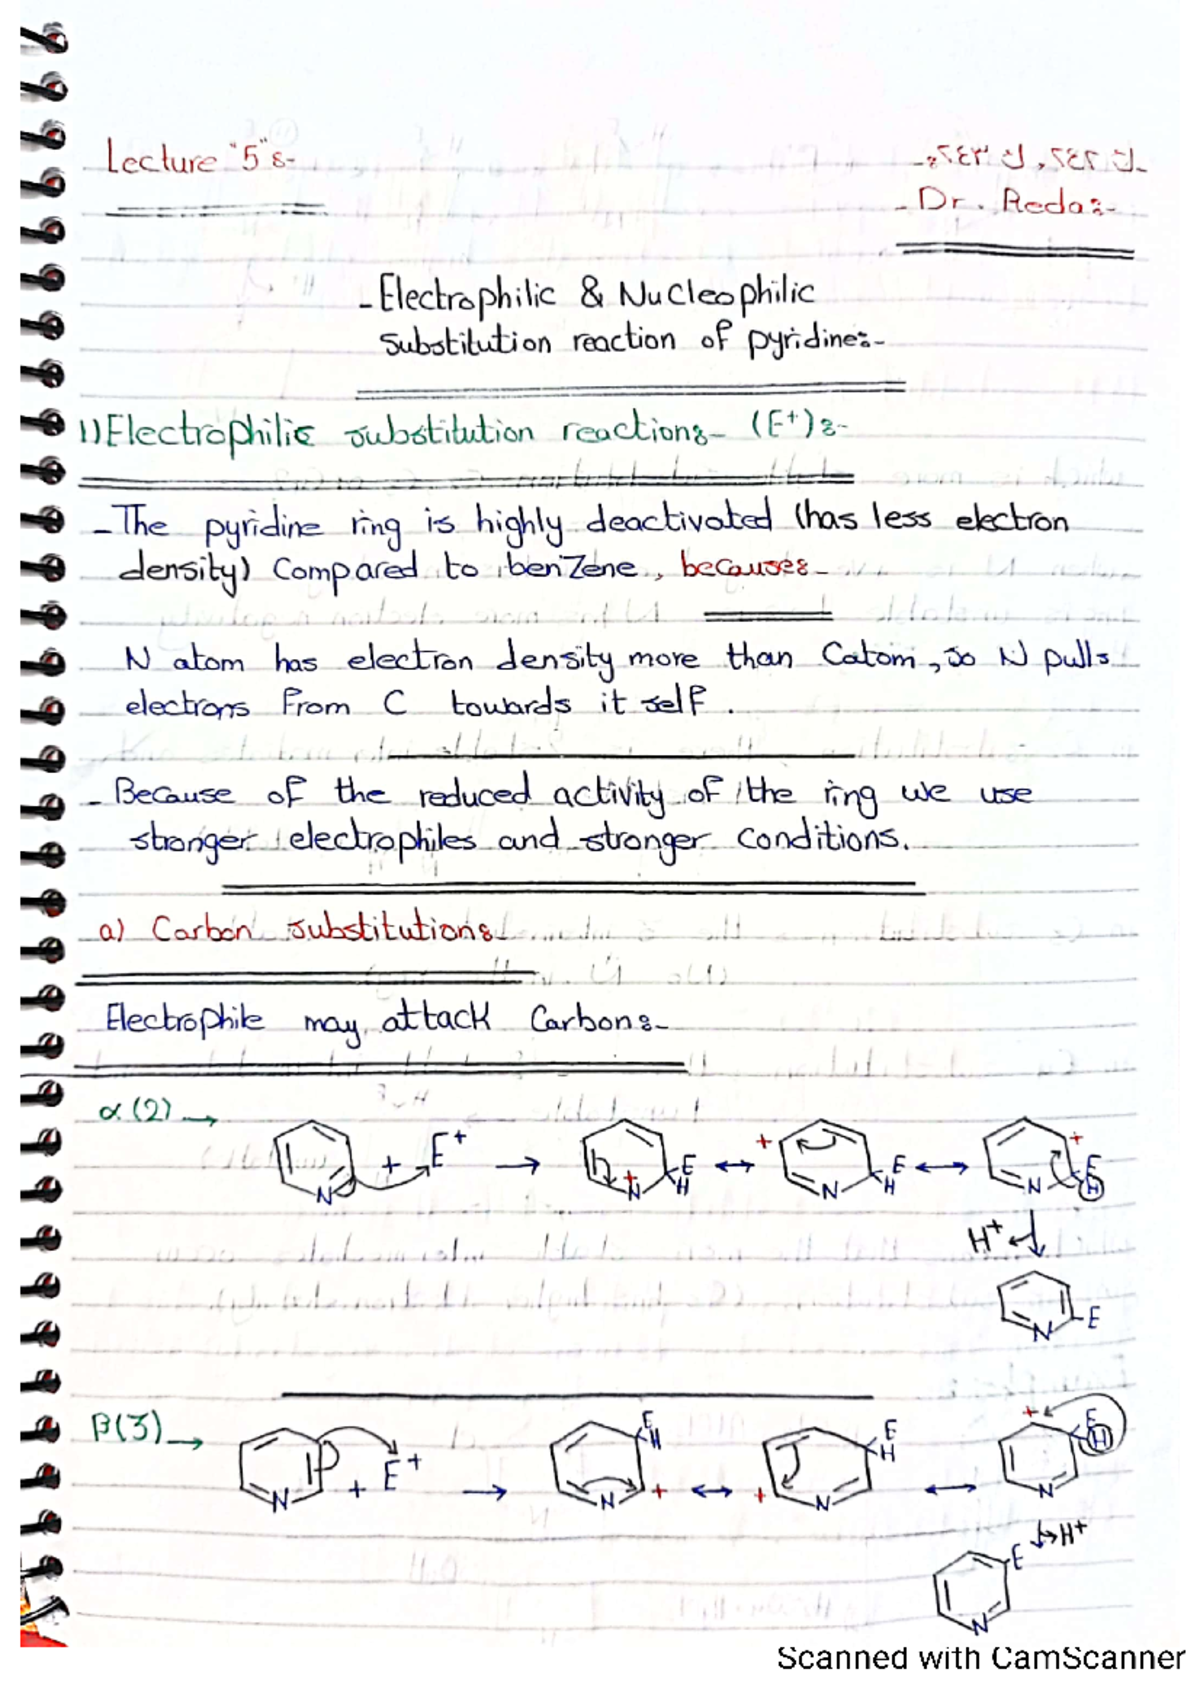 Lecture "5":-
ك ٢٤٢, ك ٢٤٣:-
- Dr. Reda:-
- Electrophilic & Nucleophilic
substitution reaction of pyridine:-
1) Electrophilic substitution reaction:- (E+):-
- The pyridine ring is highly deactivated (has less electron
density) Compared to benzene, because:-
N atom has electron density more than C atom, so N pulls
electrons from C towards it self.
- Because of the reduced activity of the ring we use
stronger electrophiles and stronger conditions.
a) Carbon substitution:-
Electrophile may attack Carbon:-
α (2) →
N + E+ → N+ E H ↔ + N E H ↔ N + E H
H+
N E
β (3) →
N + E+ → N + E H ↔ + N E H ↔ N + E H
H+
N E
Scanned with CamScanner